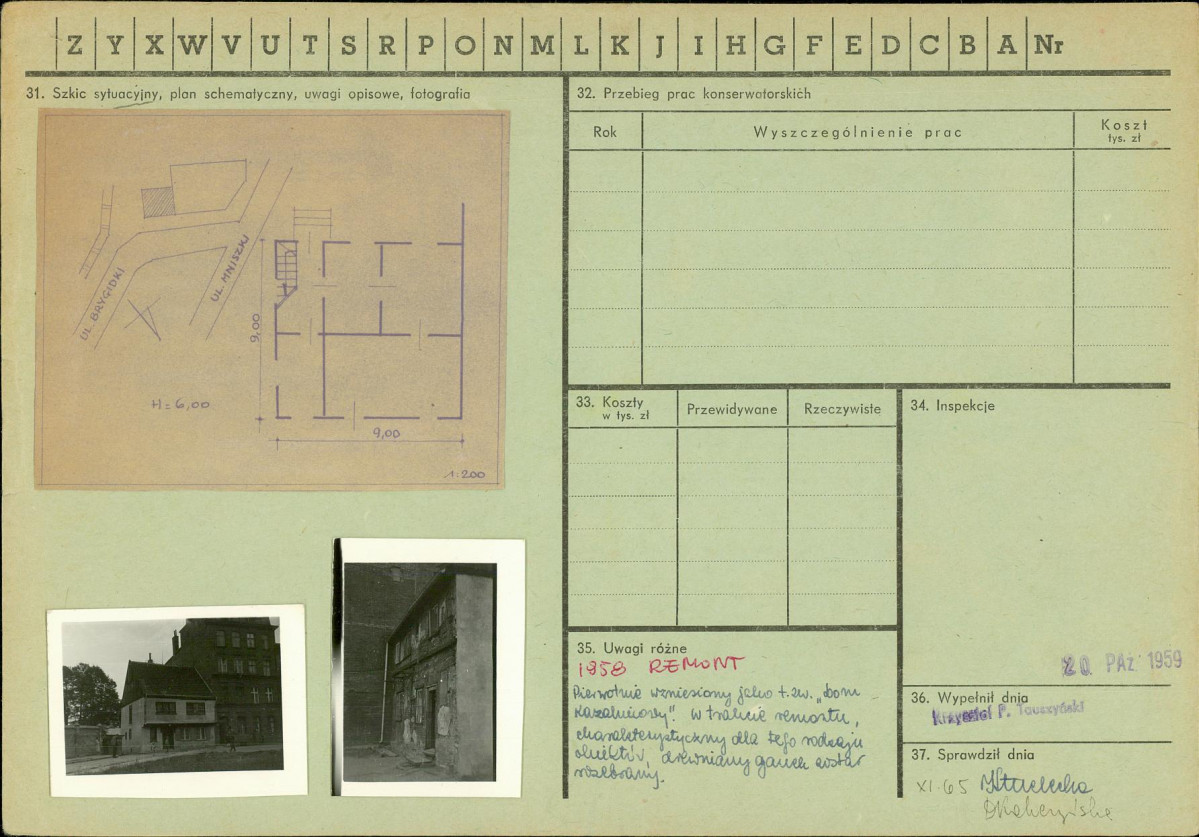 Z Y X W V U T S R P O N M L K J I H G F E D C B A Nr
31. Szkic sytuacyjny, plan schematyczny, uwagi opisowe, fotografia
UL. BRYGIDKI
UL. MNISZKI
9,00
H = 6,00
9,00
1:200
32. Przebieg prac konserwatorskich
Rok
Wyszczególnienie prac
Koszt
tys. zł
33. Koszty
w tys. zł
Przewidywane
Rzeczywiste
34. Inspekcje
20 PAŹ. 1959
35. Uwagi różne
1958 REMONT
Pierwotnie wzniesiony jako t.zw. „dom
kazalnicowy". W trakcie remontu,
charakterystyczny dla tego rodzaju
obiektów, drewniany ganek został
rozebrany.
36. Wypełnił dnia
Krzysztof P.
37. Sprawdził dnia
XI.65